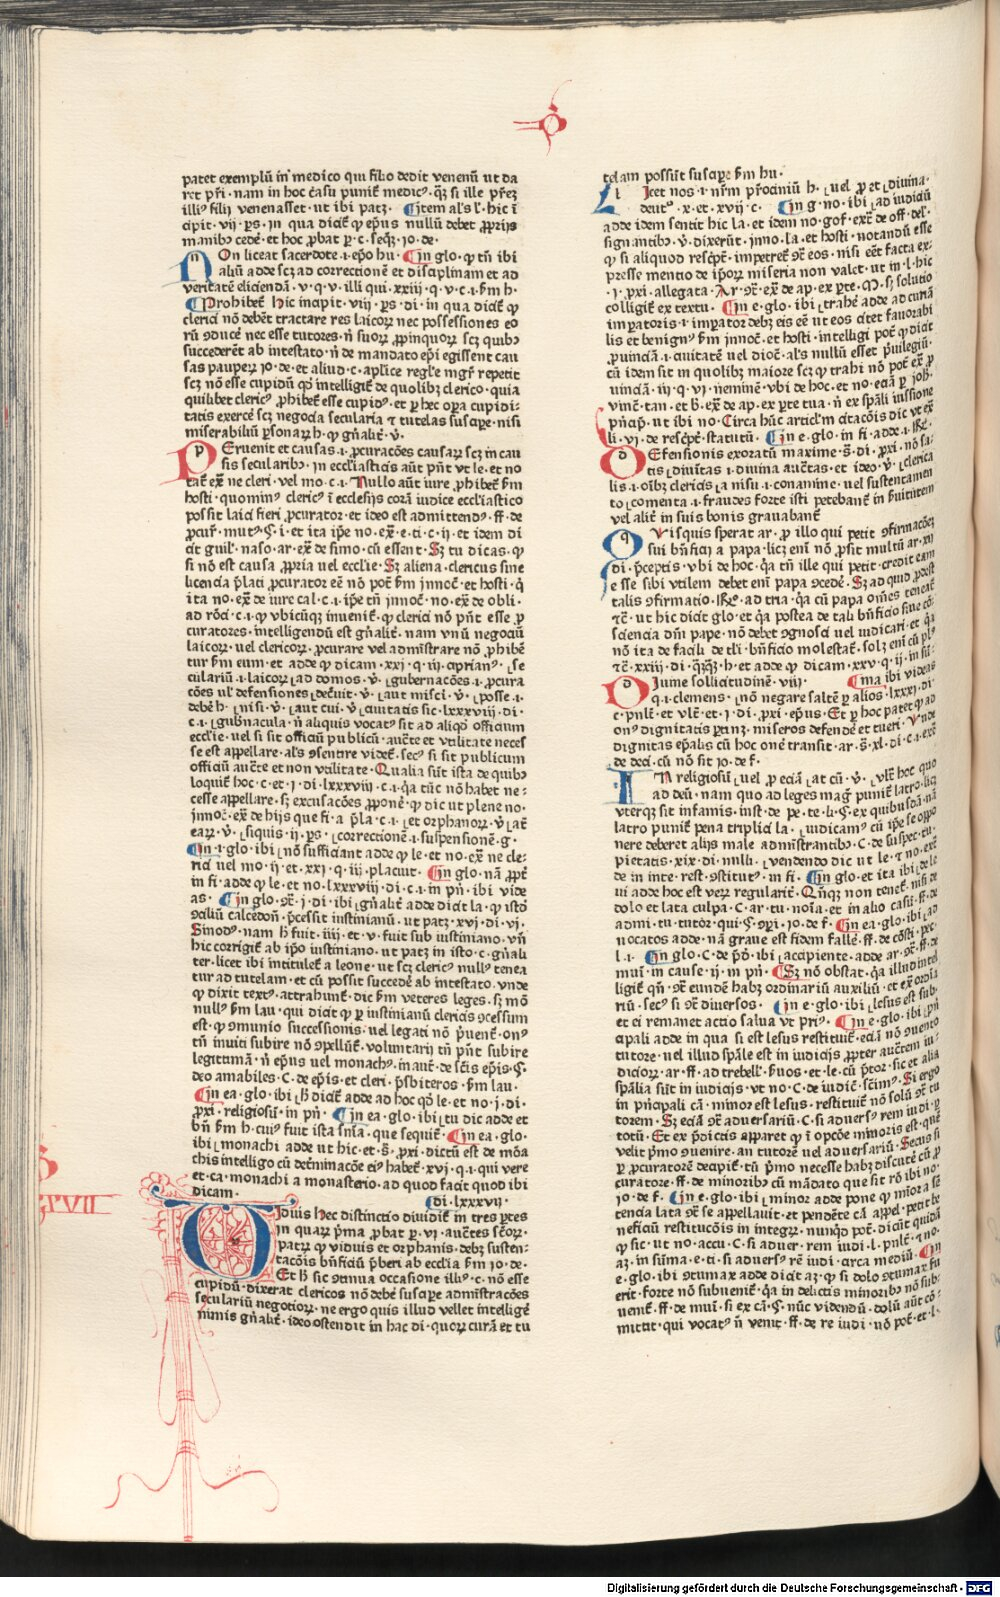 patet exemplū in medico qui filio dedit venenū ut da
ret pr̄i · nam in hoc casu punit̄ medicꝰ · qꝫ si ille pr̄ez
illiꝰ filij venenasset · ut ibi patꝫ · Item al's l' · hic ī
cipit · vij · ꝑs · in qua dicit̄ ꝙ ep̄us nullū debet ꝓprijs
manibꝰ cedeē · et hoc ꝓbat ꝑ · c · seqꝫ · io · de ·
NOn liceat sacerdote · i · ep̄o hu · In glo · ꝙ tn̄ ibi
aliū adde scꝫ ad correctionē et disciplinam et ad
veritatē eliciendā · v · q · v · illi qui · xxiij · q · v · c · i · b̄m h ·
Prohibet̄ hic incipit · viij · ꝑs · di · in qua dicit̄ ꝙ
clerici nō debēt tractare res laicoꝝ nec possessiones eo
rū ꝯducē nec esse tutores · n̄ suoꝝ ꝓpinquoꝝ scꝫ quibꝰ
succederēt ab intestato · n̄ de mandato ep̄i egissent cau
sas pauperꝝ io · de · et aliud · c · apl'ice regl'e mgr̄ repetit
scꝫ nō esse cupidū qd' intelligit̄ de quolibꝫ clerico · quia
quilibet clericꝰ ꝓhibet̄ esse cupidꝰ · et ꝑ hec oꝑa cupidi-
tatis exercē scꝫ negocia secularia ⁊ tutelas suscipe · nisi
miserabiliū ꝑsonaꝝ h · ꝙ gn̄alit̄ · v̄ ·
PEruenit et causas · i · ꝓcuracōes causaꝝ scꝫ in cau
sis secularibꝰ · in eccl'iasticis aūt pn̄t vt le · et no
tat̄ ex̄ ne cleri · vel mo · c · i · Nullo aūt iure ꝓhibet̄ b̄m
hosti · quominꝰ clericꝰ ī ecclesijs corā iudice eccl'iastico
possit laici fieri ꝓcurator · et ideo est admittendꝰ · ff · de
ꝓcur̄ · mutꝰ · § · i · et ita ip̄e no · ex̄ · e · ti · c · ij · et idem di
cit guil' · naso · ar · ex̄ de simo · cū essent · Sꝫ tu dicas · ꝙ
si nō est causa ꝓpria uel eccl'ie · Sꝫ aliena · clericus sine
licencia p̄lati ꝓcurator eē nō pot̄ b̄m īnoc̄ · et hosti · q̄
ita no · ex̄ de iure cal · c · i · ip̄e tn̄ īnoc̄ · no · ex̄ de obli ·
ad rōci · c · i · ꝙ vbicūqꝫ inuenit̄ · ꝙ clerici nō pn̄t esse ꝓ
curatores · intelligendū est gn̄alit̄ · nam vnū negociū
laicoꝝ uel clericoꝝ ꝓcurare vel admīstrare nō ꝓhibē
tur b̄m eum · et adde ꝙ dicam · xxi · q · iij · ciprianꝰ · se
culariū · i · laicoꝝ ad domos · v̄ · gubernacōes · i · ꝓcura
cōes ul' defensiones decīuit · v̄ · aut misci · v̄ · posse · i ·
debē h · nisi · v̄ · aut cui · v̄ · ciuitatis sic · lxxxviij · di ·
c · i · gubnacula · n̄ aliquis vocatꝰ sit ad aliqd' officium
eccl'ie · uel si sit officiū publicū · aucte et vtilitate neces
se est appellare · al's ꝯsentire videt̄ · secꝰ si sit publicum
officiū aucte et non vtilitate · Qualia sūt ista de quibꝰ
loquit̄ hoc · c · et · j · di · lxxxviij · c · i · q̄a tūc nō habet ne-
cesse appellare · sꝫ excusacōes ꝓponē · ꝙ dic ut plene no ·
īnoc̄ · ex̄ de hijs que fi · a p̄la · c · i · et orphanoꝝ · v̄ ·
eaꝝ · v̄ · siquis · ij · ꝑs · correctionē · i · suspensionē · g ·
In · i · glo · ibi nō sufficiant adde ꝙ le · et no · ex̄ ne cle-
rici vel mo · ij · et · xxi · q · iij · placuit · In glo · nā ꝓpt̄
in fi · adde ꝙ le · et no · lxxxviij · di · c · i · in pn̄ · ibi vide
as · In glo · ꝯt̄ · j · di · ibi gn̄alit̄ adde dicit la · ꝙ istd'
ꝯciliū calcedon̄ · p̄cessit iustinianū · ut patꝫ · xvj · di · vj ·
Sinodꝰ · nam h̄ fuit · iiij · et · v · fuit sub iustiniano · vn̄
hic corrigit̄ ab ip̄o iustiniano · ut patꝫ in isto · c · gn̄ali
ter · licet ibi intitulet̄ a leone · ut scꝫ clericꝰ nullꝰ tenea
tur ad tutelam · et cū possit succedē ab intestato · vnde
ꝙ dixit textꝰ · attrahunt̄ · dic b̄m veteres leges · sꝫ mō
nullꝰ b̄m lau · qui dicit ꝙ ꝑ iustinianū clericis ꝯcessum
est · ꝙ ꝯmunio successionis · uel legati nō ꝑuent̄ · onꝰ
tn̄ inuiti subire nō ꝯpellūt̄ · voluntarij tn̄ pn̄t subire
legittimā · n̄ ep̄nus uel monachꝰ · in aut̄ · de sc̄is ep̄is · § ·
deo amabiles · C · de ep̄is · et cleri · p̄sbiteros · b̄m lau ·
In ea · glo · ibi h̄ dicit̄ adde ad hoc qd' le · et no · j · di ·
ꝓxi · religiosū · in pn̄ · In ea · glo · ibi tu dic adde et
bn̄ b̄m h · cuiꝰ fuit ista sn̄ia · que sequit̄ · In ea · glo ·
ibi monachi adde ut hic · et · §̄ · ꝓxi · dictū est de mōa
chis intelligo cū det̄minacōe eiꝰ habet̄ · xvj · q · i · qui vere
et · ca · monachi a monasterio · ad quod facit quod ibi
dicam · di · lxxxvij ·
XVII
VIduis hec distinctio diuidit̄ in tres ꝑtes
in quaꝝ p̄ma ꝓbat ꝑ · vj · auctes scōꝝ ·
patꝝ ꝙ viduis et orphanis · debꝫ susten-
tacōis bn̄ficiū p̄beri ab eccl'ia b̄m io · de ·
Et h̄ sic ꝯtinua occasione illiꝰ · c · nō esse
cupidū · dixerat clericos nō debē suscipe admīstracōes
seculariū negotioꝝ · ne ergo quis illud vellet intelligē
nimis gn̄alit̄ · ideo ostendit in hac di · quoꝝ curā et tu
telam possūt suscipe b̄m hu ·
LIcet nos · i · nr̄m p̄rociniū h · uel ꝓ et diuina ·
deuitꝰ · x · et · xvij · c · In g · no · ibi ad iudiciū
adde idem sentit hic la · et idem no · gof · ex̄ de off · del' ·
signantibꝰ · v̄ · dixerūt · īno · la · et hosti · notandū esse
ꝙ si aliquod resc̄pt̄ · impetret̄ ꝯt̄ eos · nisi eēt facta ex-
presse mentio de ip̄oꝝ miseria non valet · ut in · l · hic
· i · ꝓxi · allegata · Ar · ꝯt̄ · ex̄ de ap · ex ꝑte · M · sꝫ solutio
colligit̄ ex textu · In e · glo · ibi trahē adde ad curiā
imꝑatoris · i · imꝑator debꝫ eis eē ut eos citet fauorabi
lis et benignꝰ b̄m īnoc̄ · et hosti · intelligi pot̄ ꝙ dicit
ꝓuinciā · i · ciuitatē uel dioc̄ · al's nullū esset p̄uilegiū ·
cū idem sit in quolibꝫ maiore scꝫ ꝙ trahi nō pot̄ ex̄ ꝓ
uinciam · iij · q · vj · neminē · vbi de hoc · et no · eciā ꝑ ioh ·
vinc̄ · tan · et b̄ · ex̄ de ap · ex ꝑte tua · n̄ ex sp̄ali iussione
pn̄cip̄ · ut ibi no · Circa hūc articl'm citacōis dic vt ex̄
li · vj · de resc̄pt̄ · statutū · In e · glo · in fi · adde · i ·
DEfensionis exoratū maxime · §̄ · di · ꝓxi · nō sa-
tis diuitas · i · diuina auctas · et ideo · v̄ · clerica
lis · i · oībꝫ clericis a nisu · i · conamine · uel sustentamen
to comenta · i · fraudes forte isti petebant̄ in ꝓuinciem
vel alit̄ in suis bonis grauabant̄
QUisquis sperat ar · ꝓ illo qui petit ꝯfirmacōeꝫ
sui bn̄ficij a papa · licꝫ enī nō ꝓsit multū ar · xij
di · p̄ceptis · vbi de hoc · q̄a tn̄ ille qui petit · credit eam
esse sibi vtilem debet enī papa ꝯcedē · Sꝫ ad quid ꝓdest
talis ꝯfirmatio · · ad tria · q̄a cū papa om̄es teneat̄
⁊c̄ · ut hic dicit glo · et q̄a postea de tali bn̄ficio siue cō-
sciencia dn̄i pape · nō debet ꝯgnosci uel iudicari · et q̄a
nō ita de facili de tl'i · bn̄ficio molestat̄ · solꝫ enī cū plꝰ
⁊c̄ · xxiij · di · qꝫqꝫ · h · et adde ꝙ dicam · xxv · q · ij · in sū ·
DIume sollicitudinē · viij · ma ibi videas
q · i · clemens · nō negare saltē ꝑ alios · lxxxj · di ·
c · pn̄lt̄ · et vlt̄ · et · j · di · ꝓxi · ep̄us · Et ꝑ hoc patet ꝙ ad
onꝰ dignitatis ꝑtinꝫ · miseros defendē et tueri · Vnde
dignitas ep̄alis cū hoc onē transit · ar · §̄ · xl · di · c · i · ex̄
de deci · cū nō sit io · de f ·
IN religiosū uel ꝓ eciā at cū · v̄ · vlt̄ hoc quo
ad deū · nam quo ad leges mag̃ punit̄ latro · licꝫ
vterqꝫ sit infamis · inst · de pe · te · li · § · ex quibusdā · nā
latro punit̄ pena triplici la · iudicamꝰ cū ip̄e se oppo
nere deberet alijs male admīstrantibꝰ · C · de suspec · tu ·
pietatis · xix · di · nulli · vendendo dic ut le · ⁊ no · ex̄
de in inte · rest · ꝯstitutꝰ · in fi · In glo · et ita ibi de le
ui adde hoc est veꝝ regularit̄ · Qn̄qꝫ non tenet̄ · nisi de
dolo et lata culpa · C · ar · tu · noīa · et in alio casu · ff · de
admi · tu · tutor · qui · § · ꝯpi · io · de f · In ea · glo · ibi ad
uocatos adde · nā graue est fidem fallē · ff · de cōsti · pec ·
l · i · In glo · C · de p̄d' · ibi accipiente · adde ar · ꝯt̄ · ff · de
mun̄ · in cause · ij · in pn̄ · Sꝫ nō obstat · q̄a illud intel
ligit̄ qn̄ · ꝯt̄ eundē habꝫ ordinariū auxiliū · et ex̄ordīa
riū · secꝰ si ꝯt̄ diuersos · In e · glo · ibi lesus est sub
et ei remanet actio salua vt priꝰ · In e · glo · ibi pn̄
cipali adde in qua si est lesus restituit̄ · eciā nō ꝯuento
tutore · uel illud sp̄ale est in iudicijs ꝓpter auctem iu-
dicioꝝ · ar · ff · ad trebell' · ꝑuos · et · le · cū p̄tor · sic et alia
sp̄alia sūt in iudicijs · vt no · C · de iudic̄ · scimꝰ · Si ergo
in pn̄cipali cā · minor est lesus · restituit̄ nō solū ꝯt̄ tu
torem · Sꝫ eciā ꝯt̄ aduersariū · C · si aduersꝰ rem iudi · ꝑ
totū · Et ex p̄dictis apparet ꝙ ī opcōe minoris est · quē
velit p̄mo ꝯuenire · an tutorē uel aduersariū · Secus si
ꝑ ꝓcuratorē decipit̄ · tū p̄mo necesse habꝫ discutē cū ꝓ
curatore · ff · de minoribꝰ cū mādato que sit rō ibi no ·
io · de f · In e · glo · ibi minor adde pone ꝙ mīor a sn̄
tencia lata ꝯt̄ se appellauit · et pendente cā appel · petit be
neficiū restitucōis in integꝝ · nunqd' pot̄ · dicūt quidā
ꝙ sic · ut no · accu · C · si aduer · rem iudi · l · pn̄lt̄ · ⁊ no ·
aꝫ · in sūma · e · ti · si aduersꝰ rē iudi · arca mediū · In
e · glo · ibi ꝯtumax adde dicit aꝫ · ꝙ si dolo ꝯtumax fu
erit · forte nō subuenit̄ · q̄a in delictis minoribꝰ nō sub-
uenit̄ · ff · de mun̄ · si ex cā · § · nūc videndū · dolū aūt cō-
mittit · qui vocatꝰ n̄ venit · ff · de re iudi · nō pot̄ · et · l ·
Digitalisierung gefördert durch die Deutsche Forschungsgemeinschaft - DFG